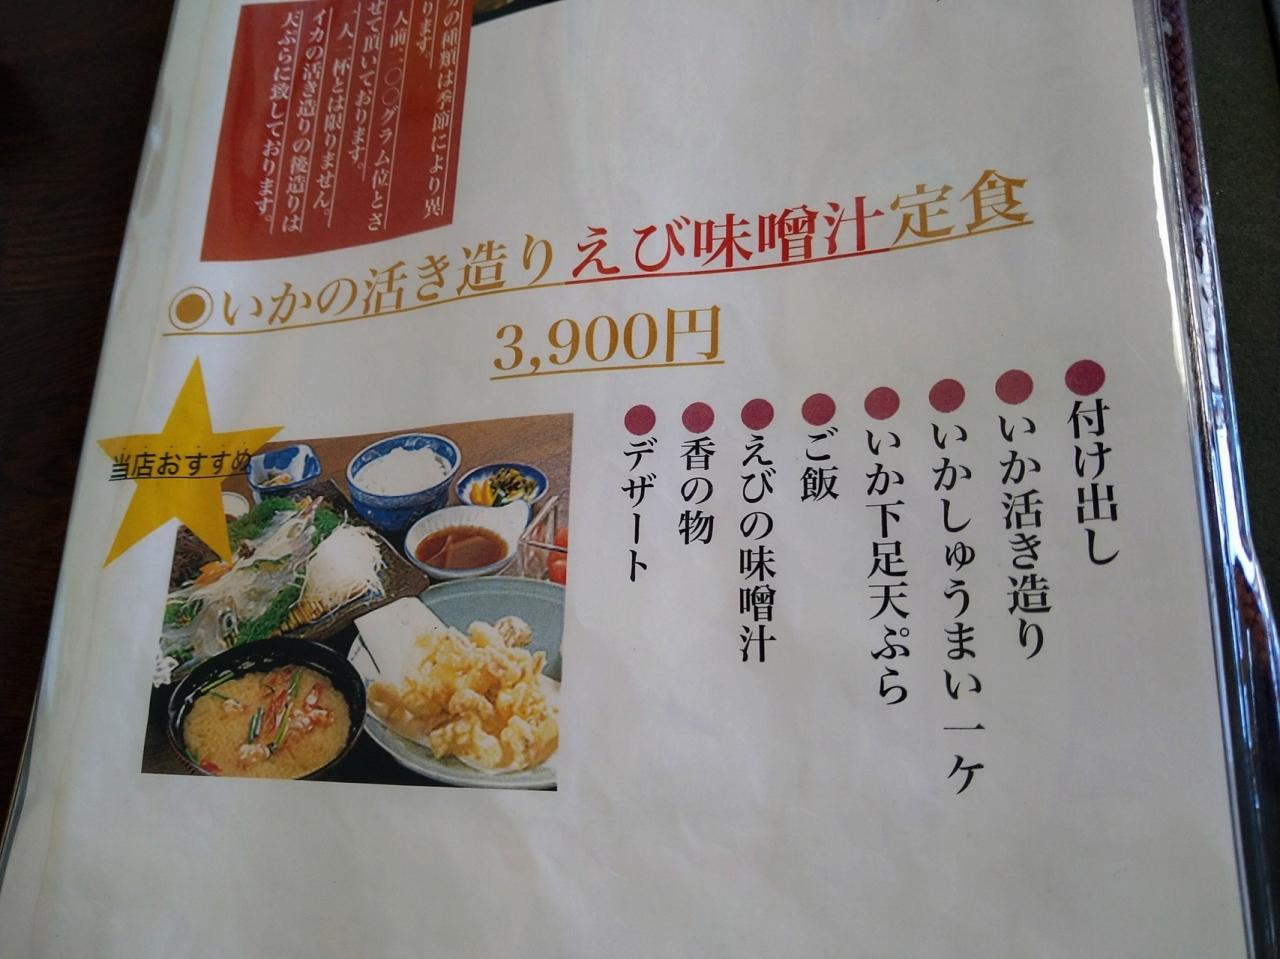 の種類は季節により異
ります。
人前二〇〇グラム位とさ
せて頂いております。
一人一杯とは限りません。
イカの活き造りの後造りは
天ぷらに致しております。
◉いかの活き造りえび味噌汁定食
3,900円
当店おすすめ
●付け出し
●いか活き造り
●いかしゅうまい一ケ
●いか下足天ぷら
●ご飯
●えびの味噌汁
●香の物
●デザート